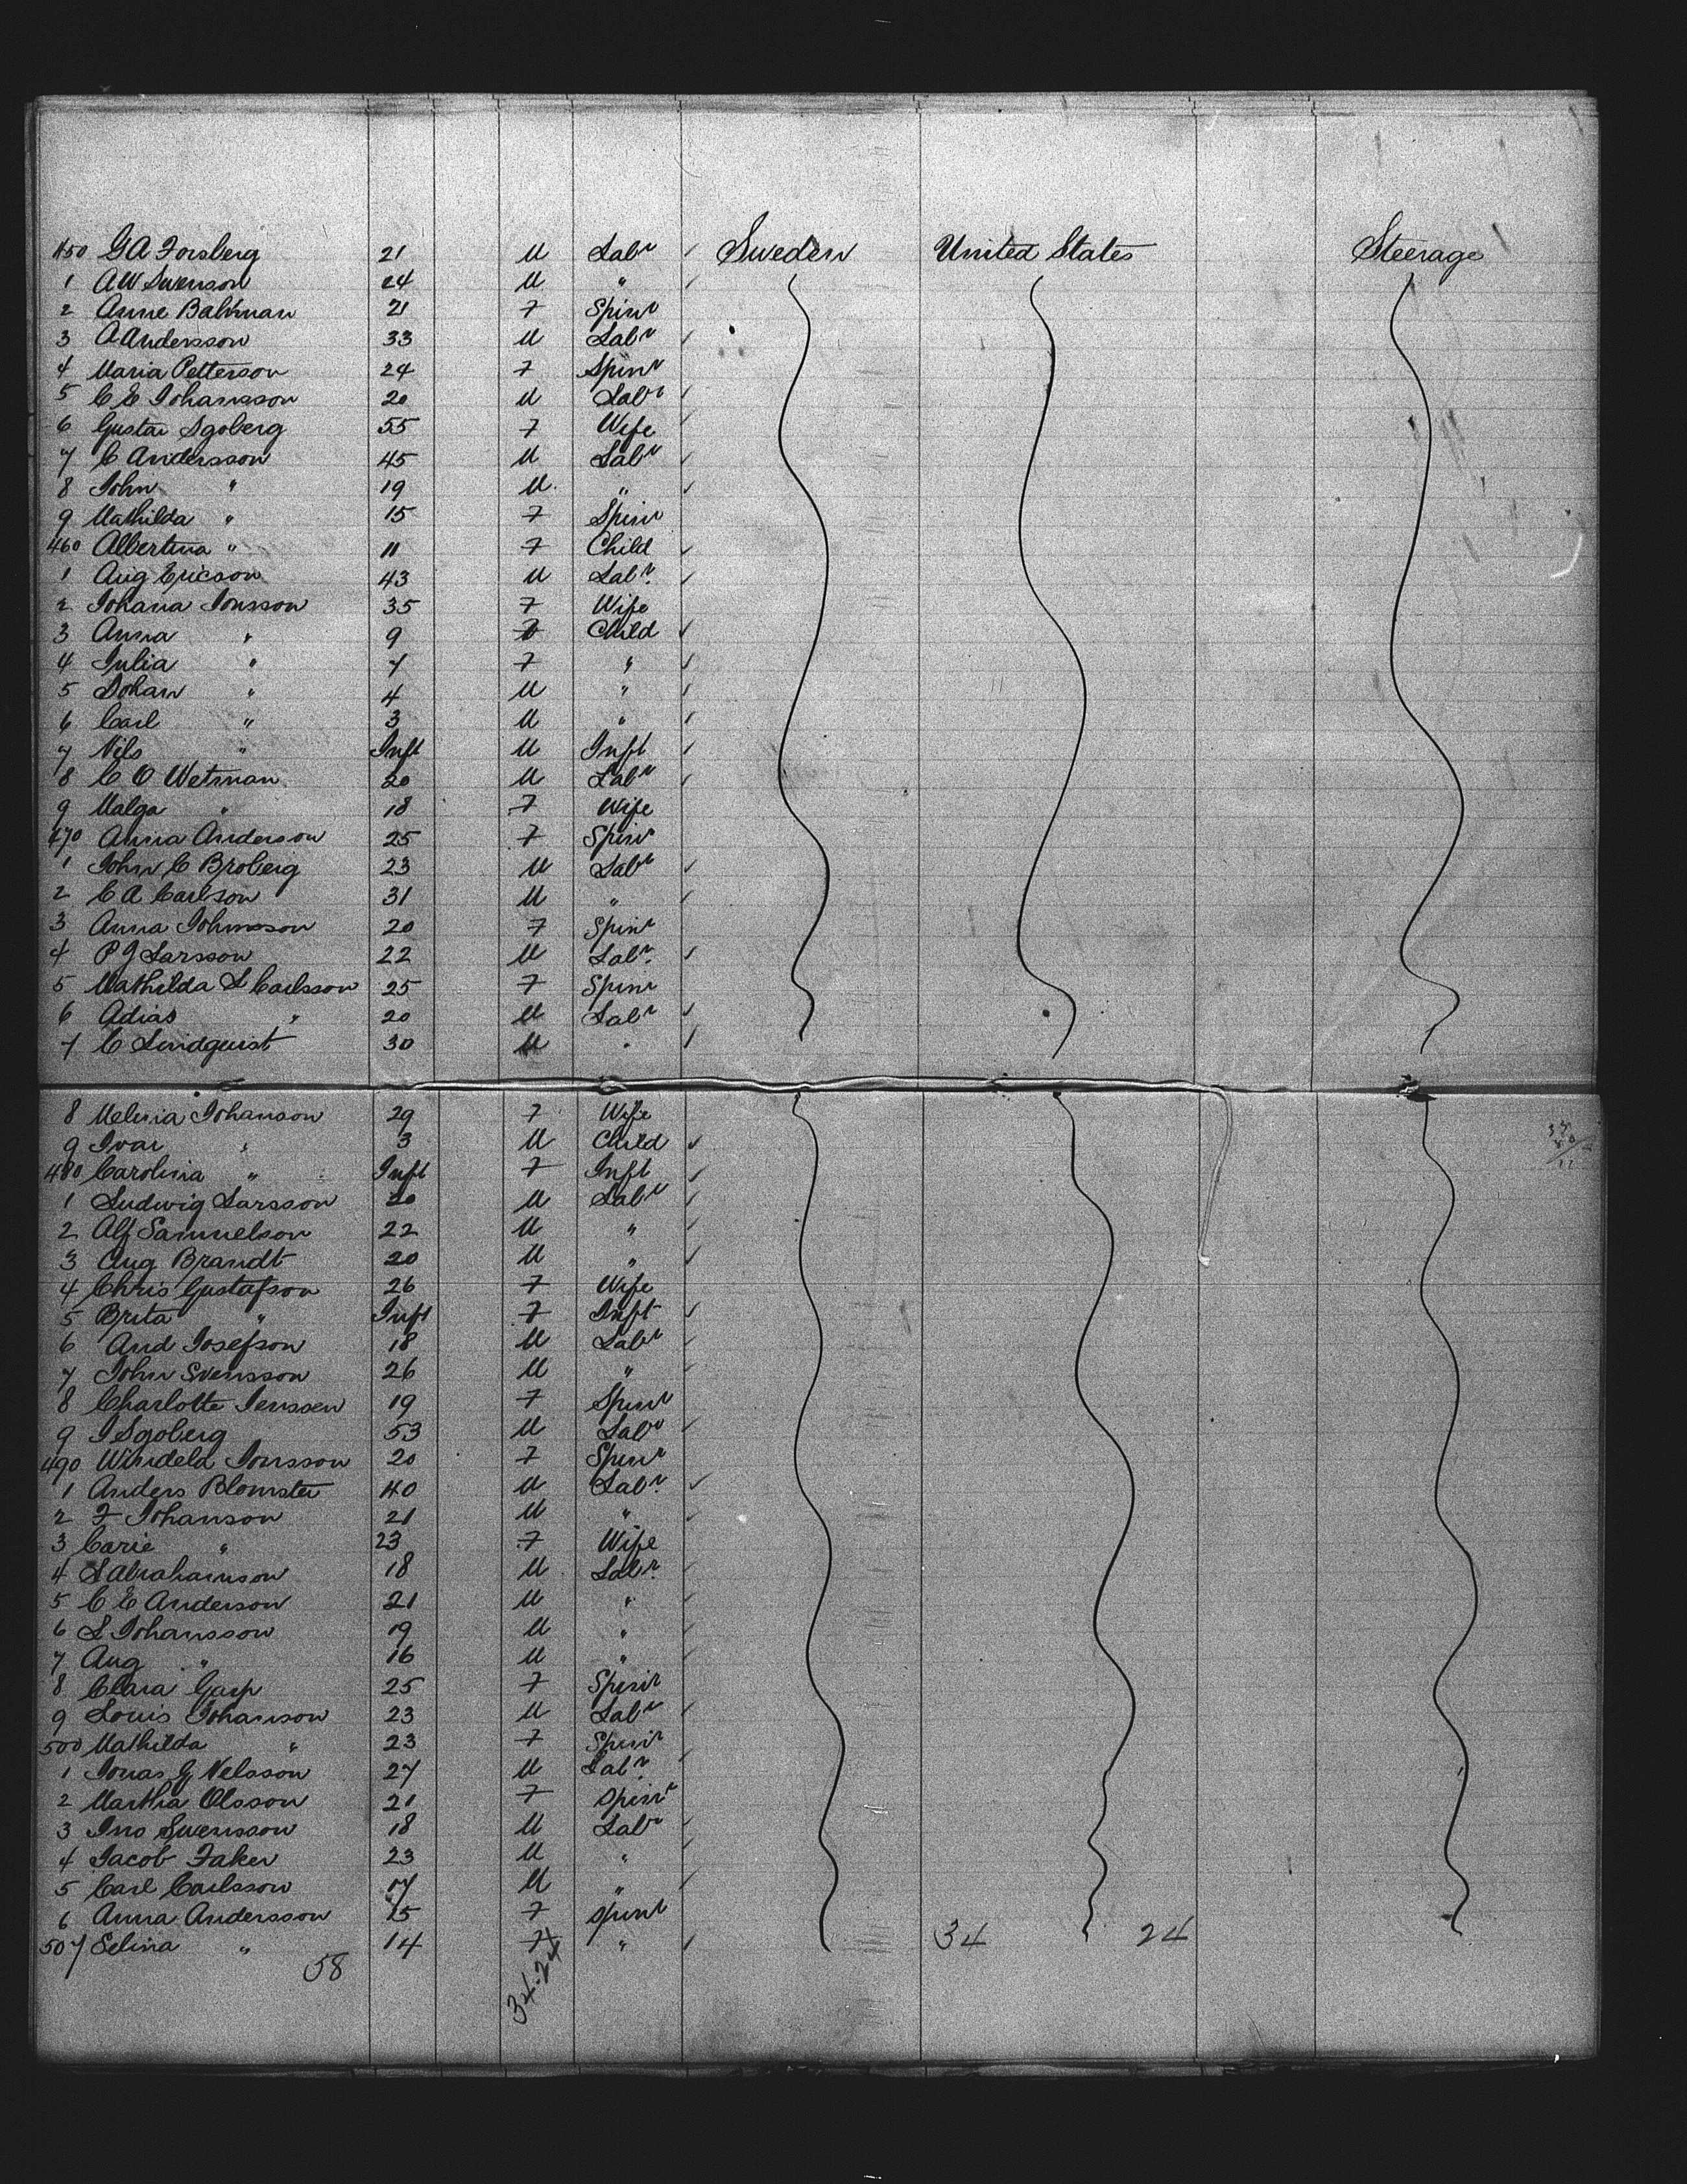 450 G A Forsberg 21 M Labr Sweden United States Steerage
1 A W Swenson 24 M "
2 Anne Baltman 21 F Spinr
3 A Andersson 33 M Labr
4 Maria Petterson 24 F Spinr
5 C E Johansson 20 M Labr
6 Gustav Sgoberg 55 F Wife
7 C Andersson 45 M Labr
8 John " 19 M "
9 Mathilda " 15 F Spinr
460 Albertina " 11 F Child
1 Aug Ericson 43 M Labr
2 Johana Jonsson 35 F Wife
3 Anna " 9 F Child
4 Julia " 7 F "
5 Johan " 4 M "
6 Carl " 3 M "
7 Nils " Inft M Inft
8 C O Wetman 20 M Labr
9 Malga " 18 F Wife
470 Anna Anderson 25 F Spinr
1 John C Broberg 23 M Labr
2 C A Carlson 31 M "
3 Anna Johnsson 20 F Spinr
4 P J Larsson 22 M Labr
5 Mathilda L Carlsson 25 F Spinr
6 Adias " 20 M Labr
7 C Lindquist 30 M "
8 Melvia Johanson 29 F Wife
9 Ivar " 3 M Child
480 Carolina " Inft F Inft
1 Ludwig Larsson 20 M Labr
2 Alf Samuelson 22 M "
3 Aug Brandt 20 M "
4 Chris Gustafson 26 F Wife
5 Brita " Inft F Inft
6 And Josefson 18 M Labr
7 John Svensson 26 M "
8 Charlotte Jenssen 19 F Spinr
9 J Sgoberg 53 M Labr
490 Windela Jonsson 20 F Spinr
1 Anders Blomster 40 M Labr
2 F Johanson 21 M "
3 Carie " 23 F Wife
4 S Abrahamson 18 M Labr
5 C E Anderson 21 M "
6 L Johansson 19 M "
7 Aug " 16 M "
8 Clara Garp 25 F Spinr
9 Louis Johanson 23 M Labr
500 Mathilda " 23 F Spinr
1 Jonas G Nelsson 27 M Labr
2 Martha Olsson 21 F Spinr
3 Jno Swensson 18 M Labr
4 Jacob Faker 23 M "
5 Carl Carlsson 17 M "
6 Anna Andersson 15 F Spinr
507 Selina " 14 F " 34 24
58 34-24